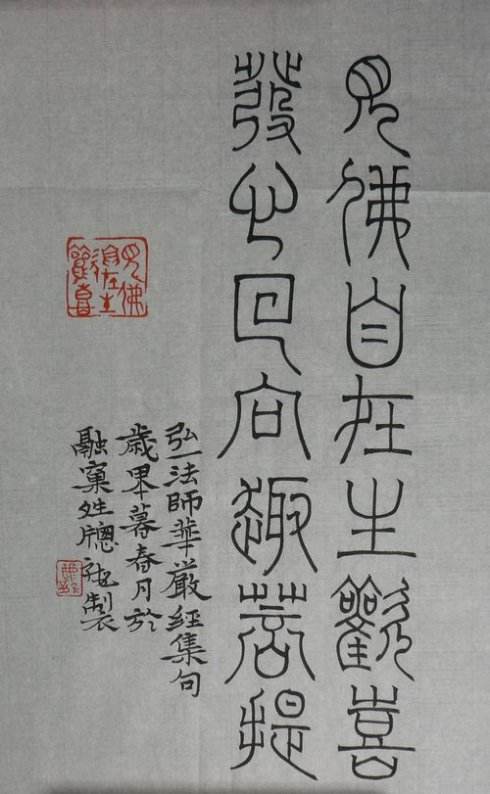 見佛自在生歡喜
發心回向趣菩提
弘一法師華嚴經集句
歲暮春月於
融製
見佛
自在生
歡喜